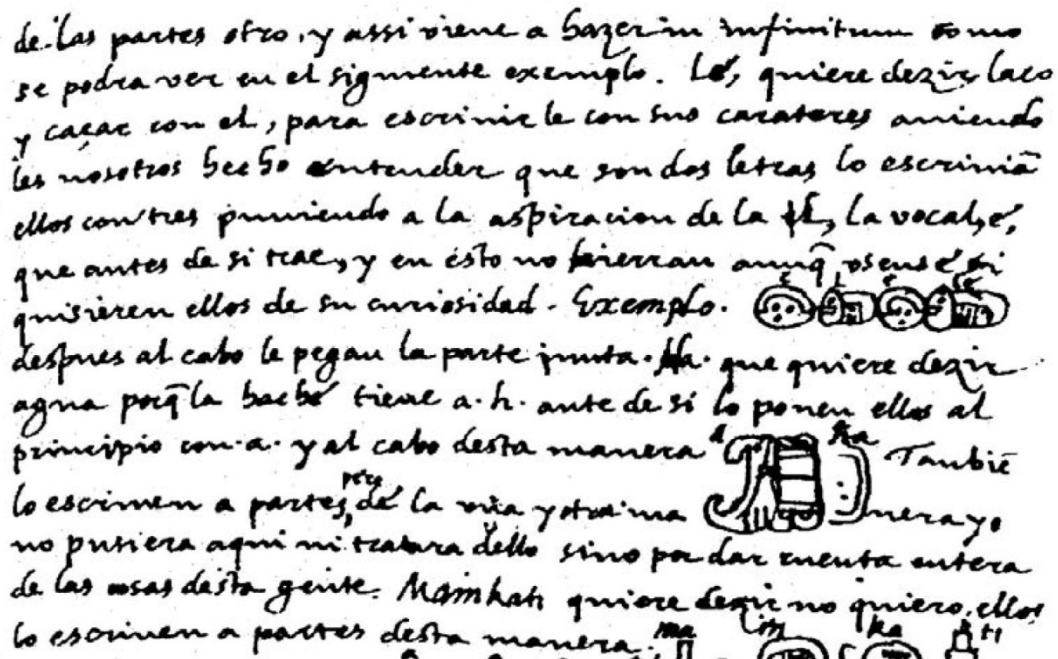 de las partes otro, y assi viene a hazer in infinitum como
se podra ver en el siguiente exemplo. Lé, quiere dezir laço
y caçar con el, para escriuir le con sus carateres auiendo
les nosotros hecho entender que son dos letras lo escriuiã
ellos con tres puniendo a la aspiracion de la l, la vocal, é,
que antes de si trae, y en esto no hierran aunq̃ usense si
quisieren ellos de su curiosidad. Exemplo. e l e le
despues al cabo le pegan la parte junta. Ha. que quiere dezir
agua porq̃ la hache tiene a. h. ante de si lo ponen ellos al
principio con a. y al cabo desta manera a ha Tambiē
lo escriuen a partes, pero de la una y otra ma nera yo
no pusiera aqui ni tratara dello sino por dar cuenta entera
de las cosas desta gente. Mainkati quiere dezir no quiero, ellos
lo escriuen a partes desta manera. ma in ka ti